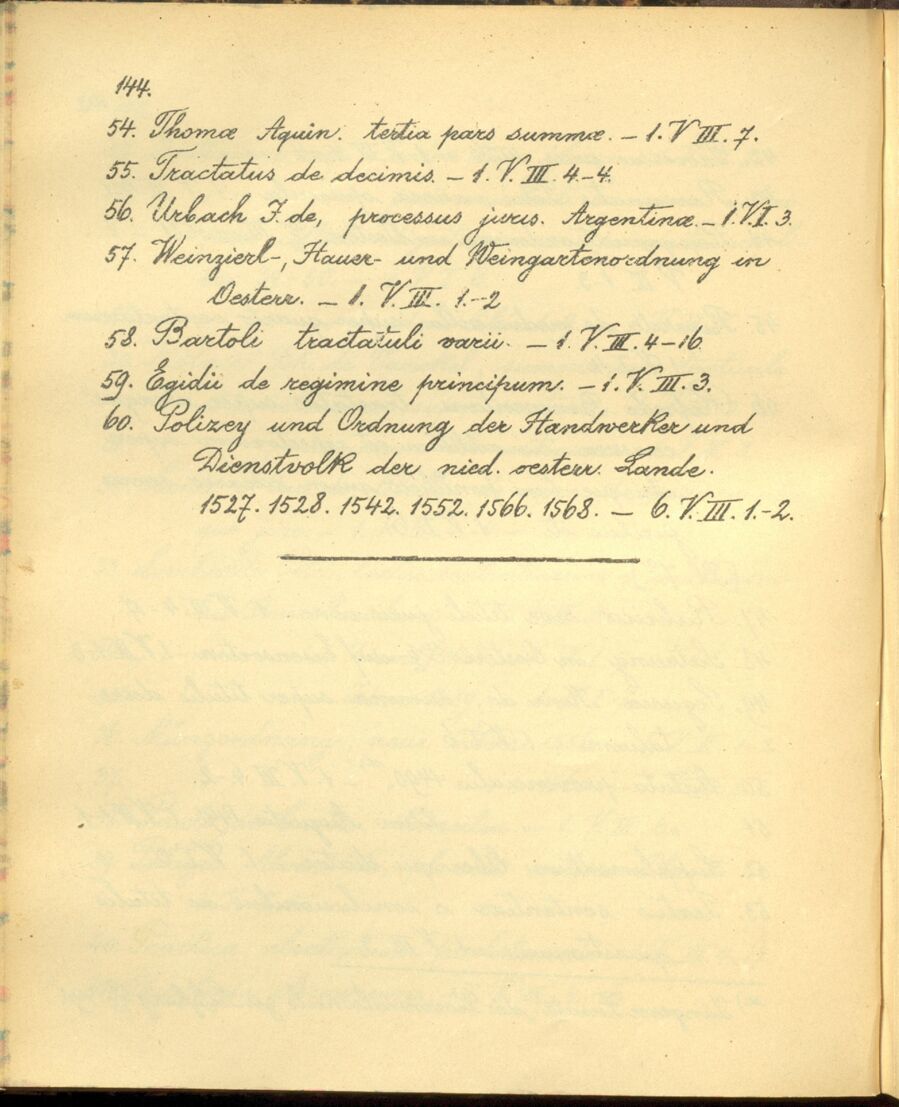 144.
54. Thomæ Aquin. tertia pars summæ. – 1. V. III. 7.
55. Tractatus de decimis. – 1. V. III. 4–4.
56. Urbach J. de, processus juris. Argentinæ. – 1. V. I. 3.
57. Weinzierl-, Hauer- und Weingartenordnung in
Oesterr. – 1. V. III. 1.–2
58. Bartoli tractatuli varii. – 1. V. III. 4–16
59. Egidii de regimine principum. – 1. V. III. 3.
60. Polizey und Ordnung der Handwerker und
Dienstvolk der nied. oesterr. Lande.
1527. 1528. 1542. 1552. 1566. 1568. – 6. V. III. 1.–2.